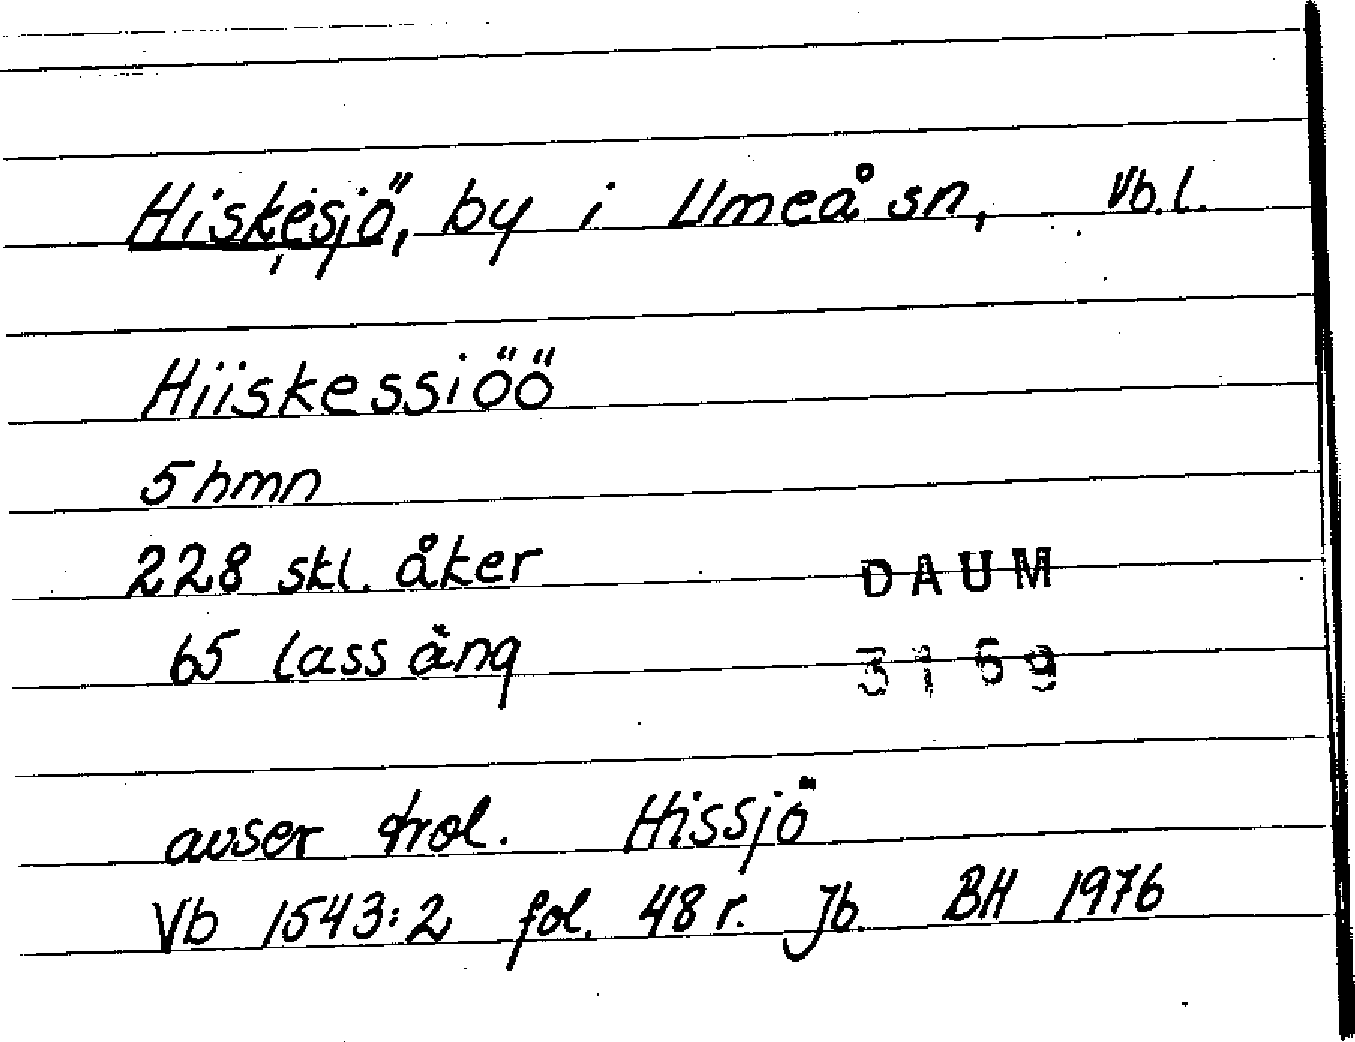 Hiskesjö, by i Umeå sn, Vb.l.
Hiiskessiöö
5 hmn
228 skl. åker
DAUM
65 lass äng
3159
avser trol. Hissjö
Vb 1543:2 fol. 48 r. Jb. BH 1976